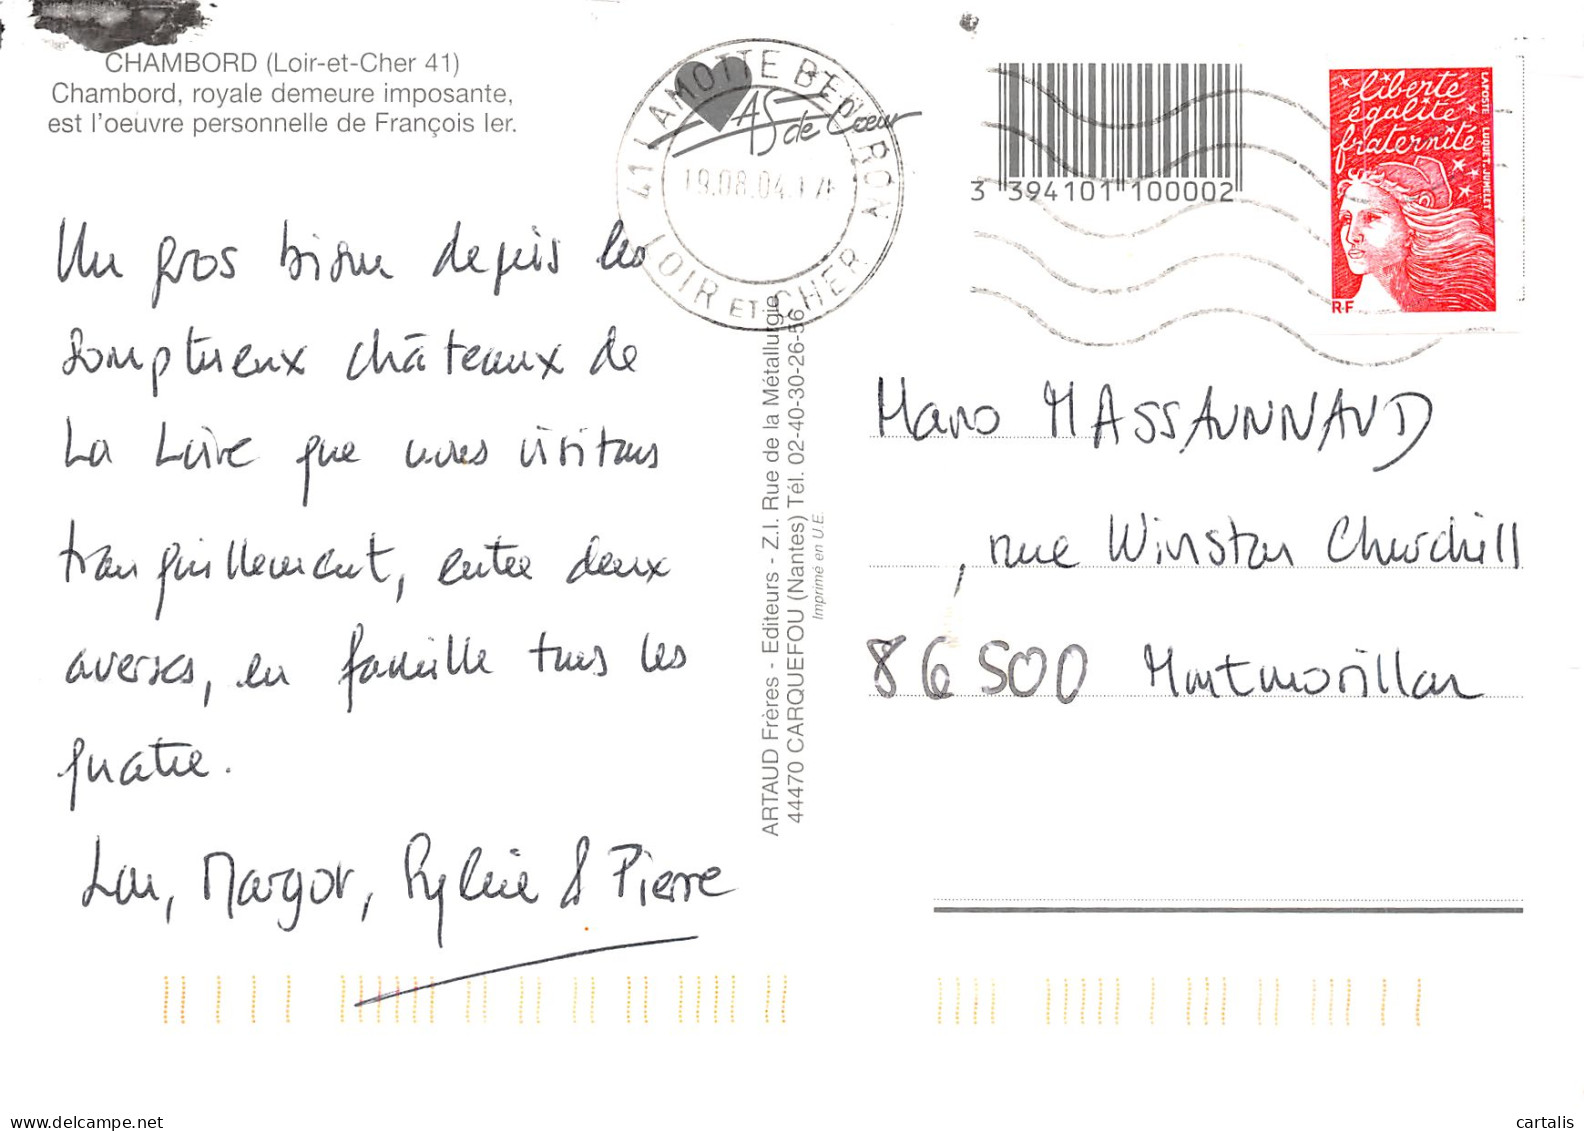 CHAMBORD (Loir-et-Cher 41)
Chambord, royale demeure imposante,
est l'oeuvre personnelle de François Ier.
Un gros bisou depuis les
somptueux châteaux de
La Loire que nous visitons
tranquillement, entre deux
averses, en famille tous les
quatre.
Lou, Margot, Sylvie & Pierre
41 LAMOTTE BEUVRON
19.08.04.17H
LOIR ET CHER
AS de Cœur
ARTAUD Frères - Editeurs - Z.I. Rue de la Métallurgie
44470 CARQUEFOU (Nantes) Tél. 02-40-30-26-56
Imprimé en U.E.
3 394101 100002
liberté
égalité
fraternité
LA POSTE LUQUET-JUMELET
RF
MASSAUNNAUD
, rue Winston Churchill
86500 Montmorillon
www.delcampe.net
cartalis